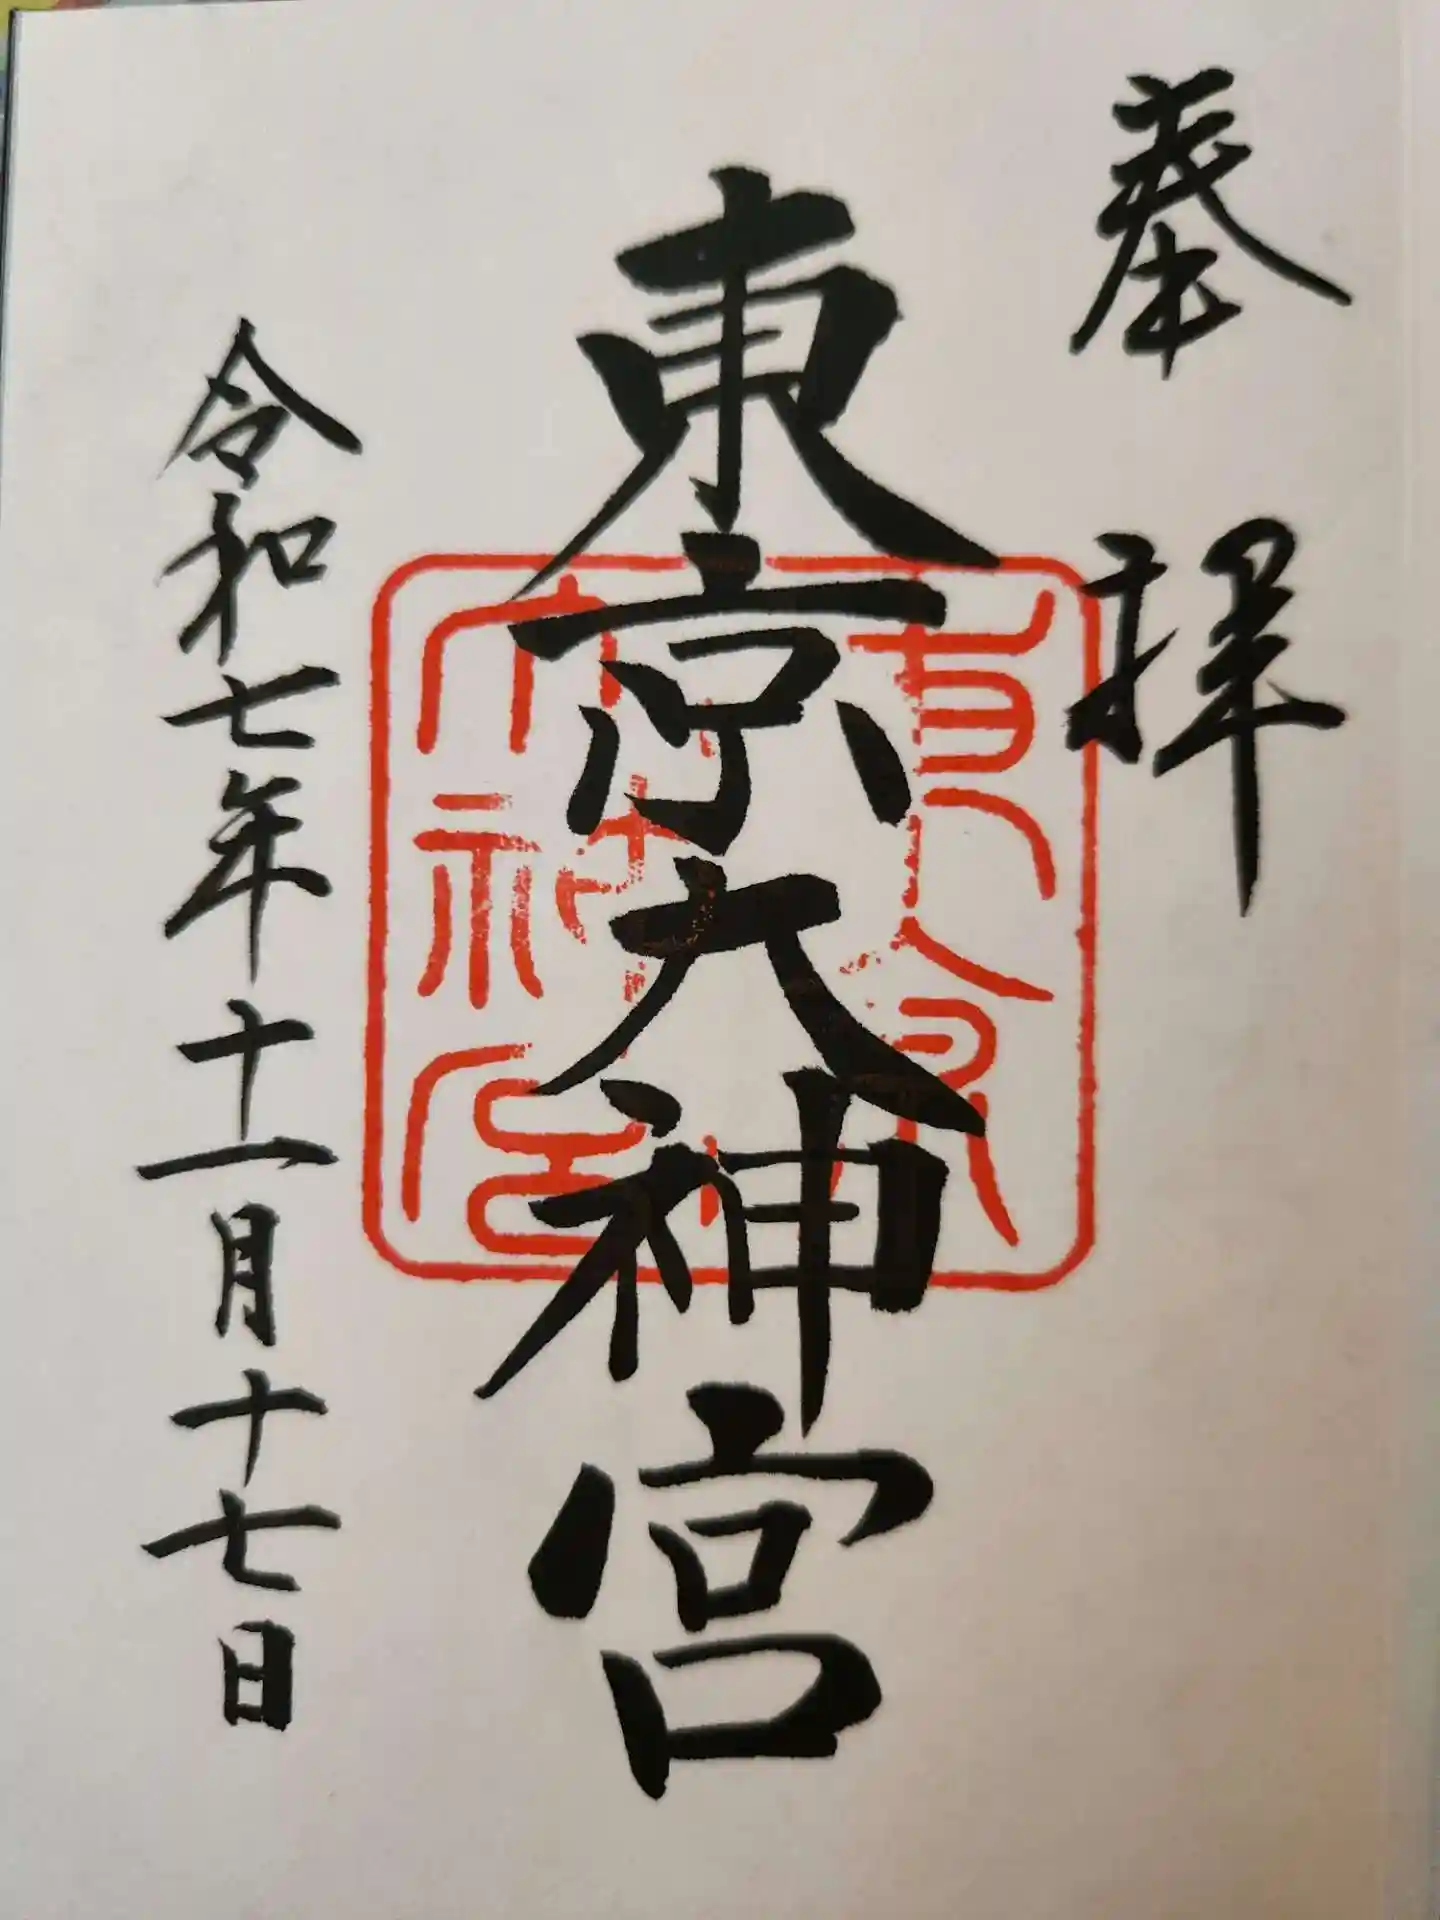 奉拝
東京大神宮
令和七年十一月十七日
東京大神宮